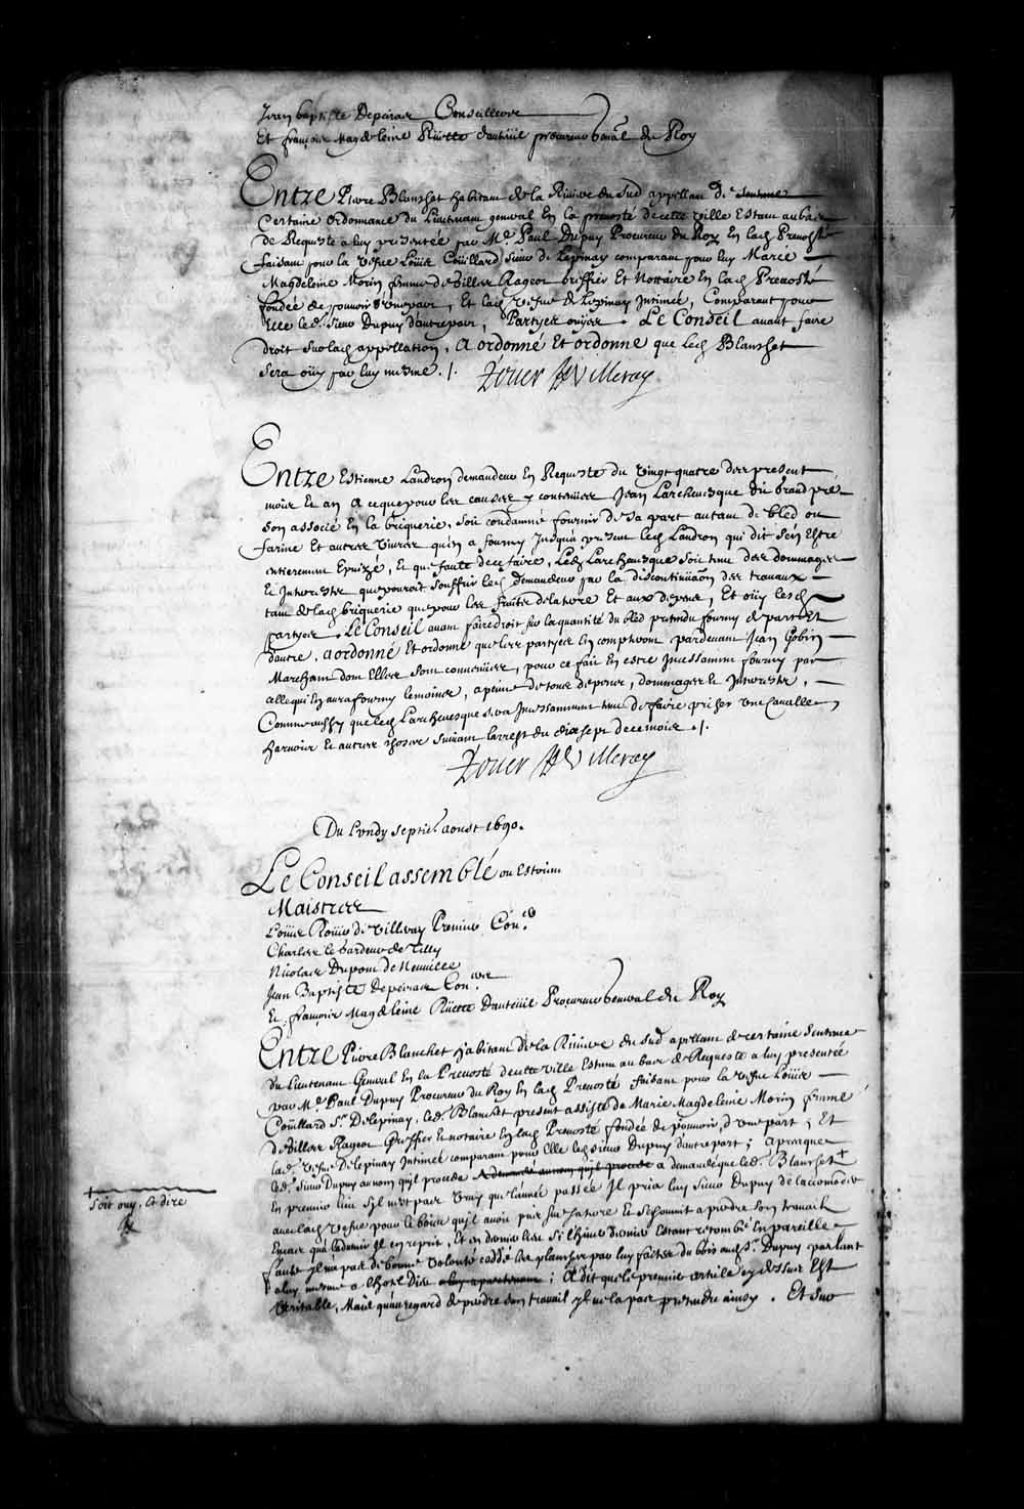 Jean baptiste Depeiras Conseillers
Et françois Magdeleine Rüette dauteüil procureur gnâl du Roy
Entre Pierre Blanchet habitant de la Riuiere du Sud appellant de Sentence
Certaine ordonnance du Lieutenant general En la preuosté de cette ville Estant au bas
de Requeste a luy presentée par Me. Paul Dupuy Procureur du Roy En lad Preuosté
faisant pour la vefue Loüis Coüillard sieur de Lepinay comparant pour luy Marie
Magdeleine Morin femme de Villers Rageot Greffier Et Nottaire En lad Preuosté
fondée de pouuoir d'vne part, Et lad vefue de Lepinay Intimée, Comparant pour
Elle led. sieur Dupuy d'autre part, Partyes ouyes. Le Conseil auant faire
droit Sur lad appellation, A ordonné Et ordonne que led Blanchet
Sera oüy par luy mesme ./. Roüer de Villeray
Entre Estienne Landron demandeur En Requeste du Vingt quatre des present
mois Et an A ce que pour les causes y contenües Jean Larcheuesque dit Grand pré
son associé En la briquerie, soit condamné fournir de sa part autant de bled ou
farine Et autres viures qu'en a fourny Jusqu'a present led Landron qui dit s'en Estre
entierement Epuizé, Et que faute de ce faire, Led Larcheuesque soit tenu des dommages
Et Interests que pouroit souffrir led demandeur par la discontinüaōn des trauaux
tant de lad briquerie que pour les fruits de la terre Et aux depens, Et oüy lesd
partyes. Le Conseil auant faire droit sur la quantité du bled pretendu fourny de part Et
d'autre. a ordonné Et ordonne que les partyes En compteront pardeuant Jean Gobin
Marchand dont Elles sont conuenües, pour ce fait En estre Incessamment fourny par
celle qui En aura fourny le moins, a peine de tous depens, dommages Et Interests,
Comme aussy que led Larcheuesque sera Incessamment tenu de faire priser vne Caualle
harnois Et autres choses suiuant l'arrest du dix sept de ce mois ./.
Roüer de Villeray
Du Lundy septie. aoust 1690.
Le Conseil assemblé ou Estoient
Maistres
Loüis Roüer de Villeray Premier Con.er
Charles le Gardeur de Tilly
Nicolas Dupont de Neuuille
Jean Baptiste Depeiras Con.ers
Et françois Magdeleine Rüette Dauteüil Procureur General du Roy
Entre Pierre Blanchet habitant de la Riuiere du Sud apellant de certaine Sentence
du Lieutenant General En la Preuosté de cette ville Estant au bas de Requeste a luy presentée
par Me. Paul Dupuy Procureur du Roy En lad Preuosté faisant pour la vefue Loüis
Coüillard Sr. Delepinay, led. Blanchet present assisté de Marie Magdeleine Morin femme
de Villers Rageot Greffier Et notaire En lad Preuosté fondée de pouuoir, d'vne part; Et
lad. vefue Delepinay Intimée comparant pour Elle led sieur Dupuy d'autre part; Apres que
led. sieur Dupuy au nom qu'il procede a demandé au nom qu'il procede a demandé que led. Blanchet +
En premier lieu s'il n'est pas vray que l'année passée Il pria luy sieur Dupuy de l'accomoder
auec lad vefue pour le bois qu'il auoit pris sur sa terre Et se soumit a perdre son trauail
faute Il n'a pas de bonne volonté cedé les planches par luy faites du bois aud Sr. Dupuy parlant
a luy mesme a l'hotel Dieu; A dit que le premier article cy dessus Est
Veritable, Mais qu'au regard de perdre son trauail Il ne l'a pas pretendu ainsy. Et sur
+ Soit ouy. Et dire